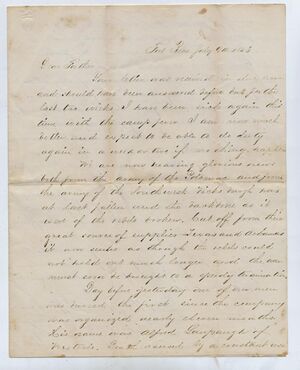 July 9th 1863
Dear Father
Your letter was received in due time
and should have been answered before but for the
last two weeks I have been sick again this
time with the camp fever I am now much
better and expect to be able to do duty
again in a week or two if nothing happens
We are now hearing glorious news
both from the army of the Potomac and from
the army of the Southwest Vicksburgh was
at last fallen and the backbone as it
were of the rebels broken. Cut off from this
great source of supplies Texas and Arkansas
it now seems as though the rebels could
not hold out much longer and the war
must soon be brought to a speedy termination
Day before yesterday one of our men
was buried the first since the company
was organized nearly eleven months
His name was Alfred of
death caused by a